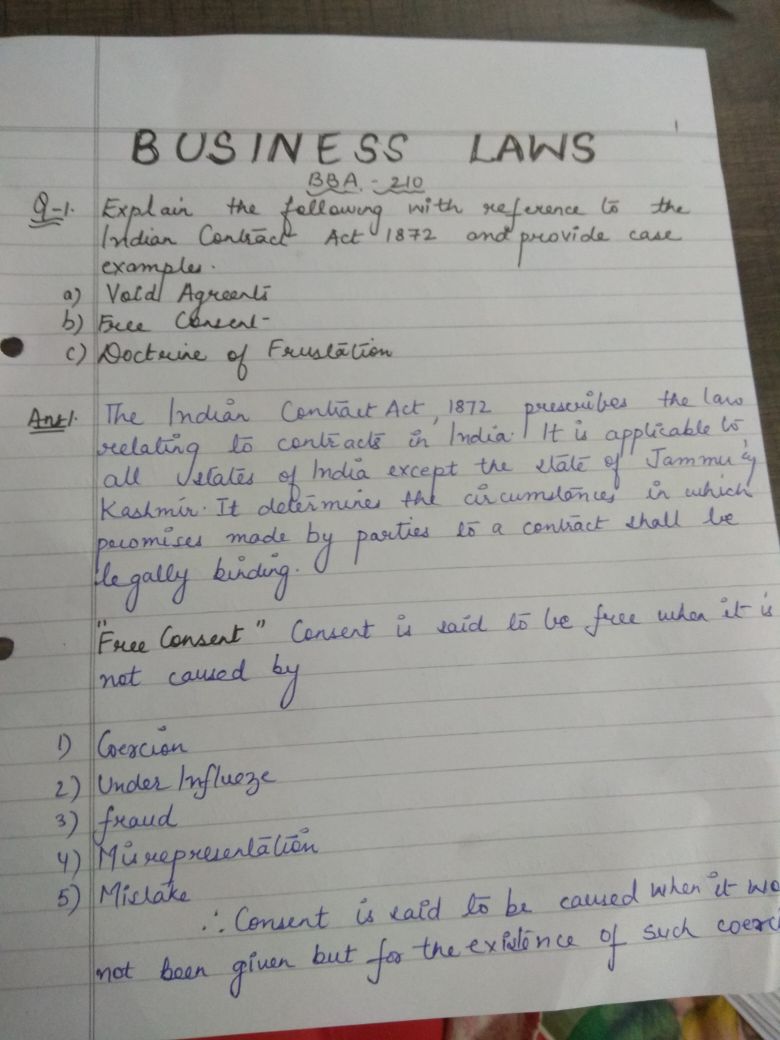 BUSINESS LAWS
BBA.-210
Q-1. Explain the following with reference to the
Indian Contract Act 1872 and provide case
examples.
a) Void Agreents
b) Free Consent-
c) Doctrine of Frustation
Ans1. The Indian Contract Act, 1872 prescribes the law
relating to contracts in India. It is applicable to
all states of India except the state of Jammu &
Kashmir. It determines the circumstances in which
promises made by parties to a contract shall be
legally binding.
"Free Consent" Consent is said to be free when it is
not caused by
1) Coercion
2) Under Influeze
3) fraud
4) Misrepresentation
5) Mistake
∴ Consent is said to be caused when it wo
not been given but for the existence of such coerci